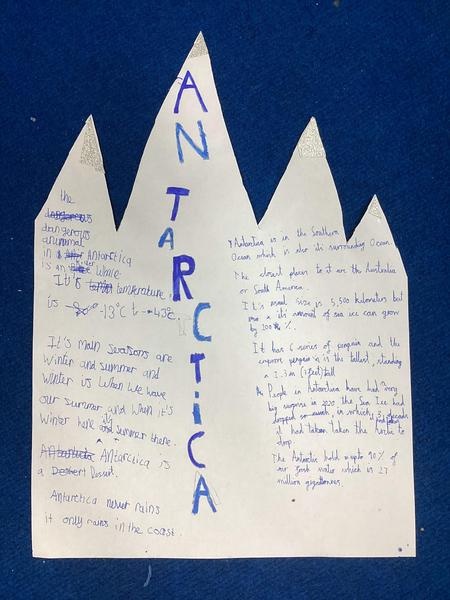 ANTARCTICA
the
dangerous
animal
in Antarctica
is an Whale
It's temperature.
is -13°C to -43°C.
It's Main Seasons are
Winter and summer and
Winter is when we have
our summer and when it's
Winter here it's summer there.
Antarctica is
a Desert.
Antarctica never rains
it only rains in the coast.
Antarctica is in the Southern
Ocean which is also its surrounding Ocean.
The closest places to it are the Australia
or South America.
It's usual size is 5,500 kilometers but
its amount of sea ice can grow
by 200%.
It has 6 series of penguin and the
emperor penguin is the tallest, standing
a 1.3m tall
People in Antarctica have had very
big surprise in 2020 the Sea Ice had
dropped so much, in which 3 decades
it had taken the Arctic to
drop.
The Antarctic hold upto 90% of
fresh water which is 27
million gigatonnes.